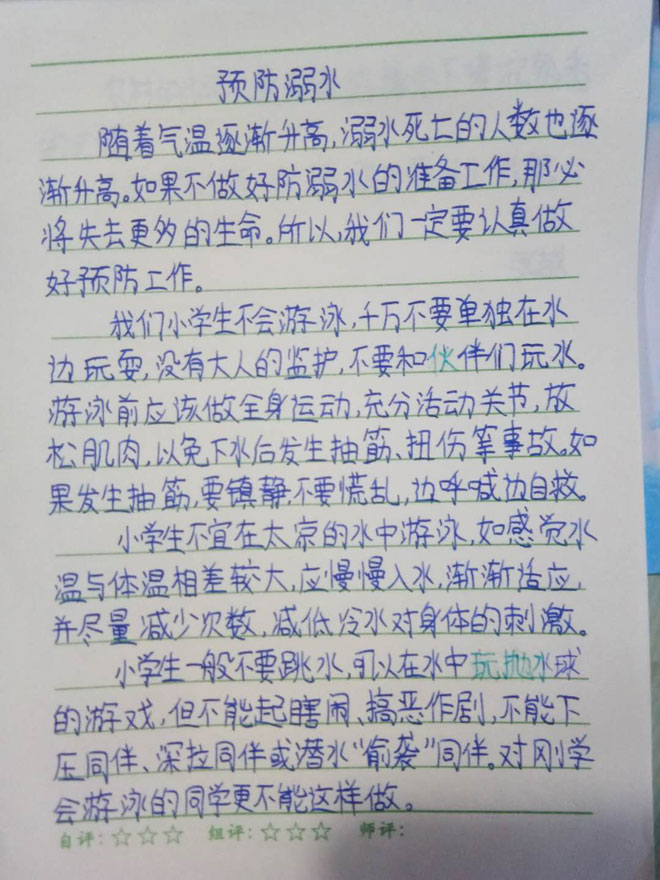 预防溺水
随着气温逐渐升高,溺水死亡的人数也逐
渐升高。如果不做好防溺水的准备工作,那必
将失去更多的生命。所以,我们一定要认真做
好预防工作。
我们小学生不会游泳,千万不要单独在水
边玩耍,没有大人的监护,不要和伙伴们玩水。
游泳前应该做全身运动,充分活动关节,放
松肌肉,以免下水后发生抽筋、扭伤等事故。如
果发生抽筋,要镇静,不要慌乱,边呼喊边自救。
小学生不宜在太凉的水中游泳,如感觉水
温与体温相差较大,应慢慢入水,渐渐适应,
并尽量减少次数,减低冷水对身体的刺激。
小学生一般不要跳水,可以在水中玩抛水球
的游戏,但不能起瞎闹、搞恶作剧,不能下
压同伴、深拉同伴或潜水“偷袭”同伴。对刚学
会游泳的同学更不能这样做。
自评:☆☆☆ 组评:☆☆☆ 师评: